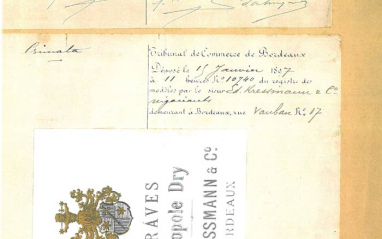 Tribunal de Commerce de Bordeaux
Déposé le 15 Janvier 1887
à 11 heures No 10740 du registre des
modèles par le sieur Ed. Kressmann & Co
négociants
demeurant à Bordeaux, rue Vauban No 17
RAVES
opole Dry
SSMANN & Co
RDEAUX